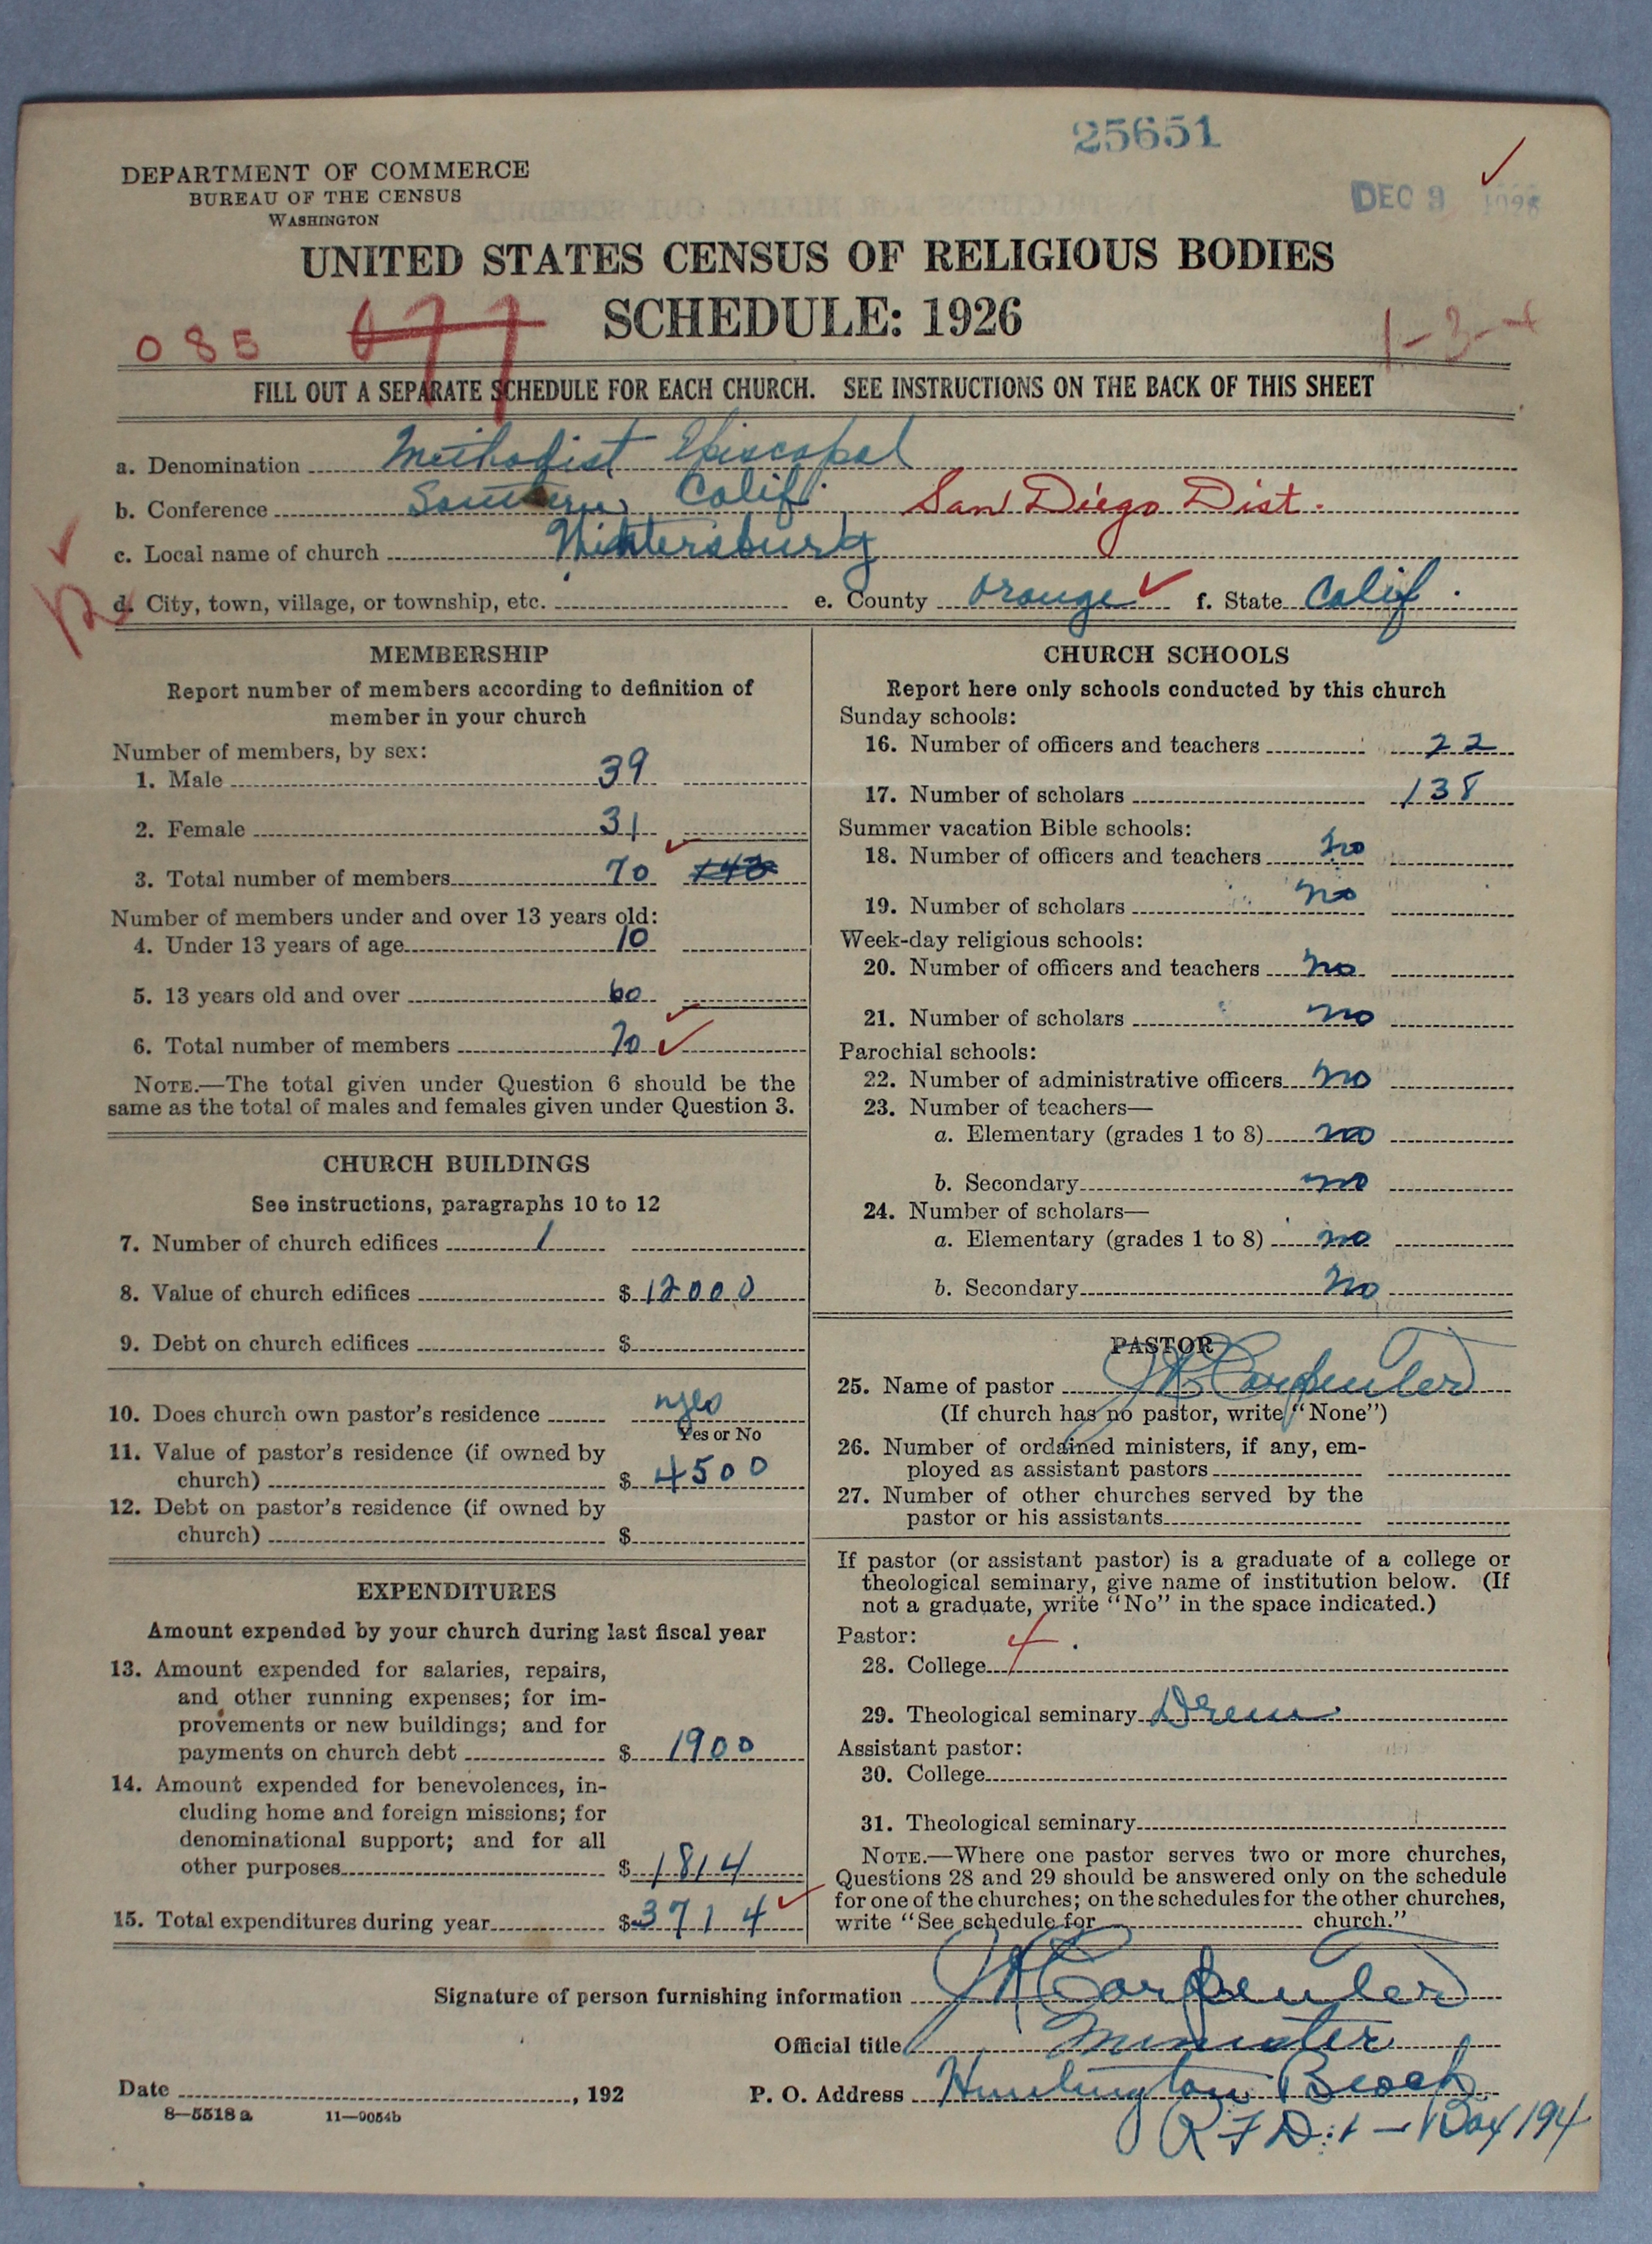 25651
DEPARTMENT OF COMMERCE
BUREAU OF THE CENSUS
WASHINGTON
DEC 9
UNITED STATES CENSUS OF RELIGIOUS BODIES
SCHEDULE: 1926
085 677
1-3-4
FILL OUT A SEPARATE SCHEDULE FOR EACH CHURCH. SEE INSTRUCTIONS ON THE BACK OF THIS SHEET
a. Denomination Methodist Episcopal
b. Conference Southern Calif. San Diego Dist.
c. Local name of church Wintersburg
d. City, town, village, or township, etc. e. County Orange f. State Calif.
MEMBERSHIP
Report number of members according to definition of
member in your church
Number of members, by sex:
1. Male 39
2. Female 31
3. Total number of members 70
Number of members under and over 13 years old:
4. Under 13 years of age 10
5. 13 years old and over 60
6. Total number of members 70
NOTE.—The total given under Question 6 should be the
same as the total of males and females given under Question 3.
CHURCH BUILDINGS
See instructions, paragraphs 10 to 12
7. Number of church edifices 1
8. Value of church edifices $ 12000
9. Debt on church edifices $
10. Does church own pastor's residence yes
Yes or No
11. Value of pastor's residence (if owned by
church) $ 4500
12. Debt on pastor's residence (if owned by
church) $
EXPENDITURES
Amount expended by your church during last fiscal year
13. Amount expended for salaries, repairs,
and other running expenses; for im-
provements or new buildings; and for
payments on church debt $ 1900
14. Amount expended for benevolences, in-
cluding home and foreign missions; for
denominational support; and for all
other purposes $ 1814
15. Total expenditures during year $ 3714
CHURCH SCHOOLS
Report here only schools conducted by this church
Sunday schools:
16. Number of officers and teachers 22
17. Number of scholars 138
Summer vacation Bible schools:
18. Number of officers and teachers no
19. Number of scholars no
Week-day religious schools:
20. Number of officers and teachers no
21. Number of scholars no
Parochial schools:
22. Number of administrative officers no
23. Number of teachers—
a. Elementary (grades 1 to 8) no
b. Secondary no
24. Number of scholars—
a. Elementary (grades 1 to 8) no
b. Secondary no
PASTOR
25. Name of pastor Carpenter
(If church has no pastor, write "None")
26. Number of ordained ministers, if any, em-
ployed as assistant pastors
27. Number of other churches served by the
pastor or his assistants
If pastor (or assistant pastor) is a graduate of a college or
theological seminary, give name of institution below. (If
not a graduate, write "No" in the space indicated.)
Pastor:
28. College
29. Theological seminary Drew
Assistant pastor:
30. College
31. Theological seminary
NOTE.—Where one pastor serves two or more churches,
Questions 28 and 29 should be answered only on the schedule
for one of the churches; on the schedules for the other churches,
write "See schedule for church."
Signature of person furnishing information Carpenter
Official title Minister
Date , 192 P. O. Address Huntington Beach
8—5518 a 11—9054b
R F D: 1 — Box 194